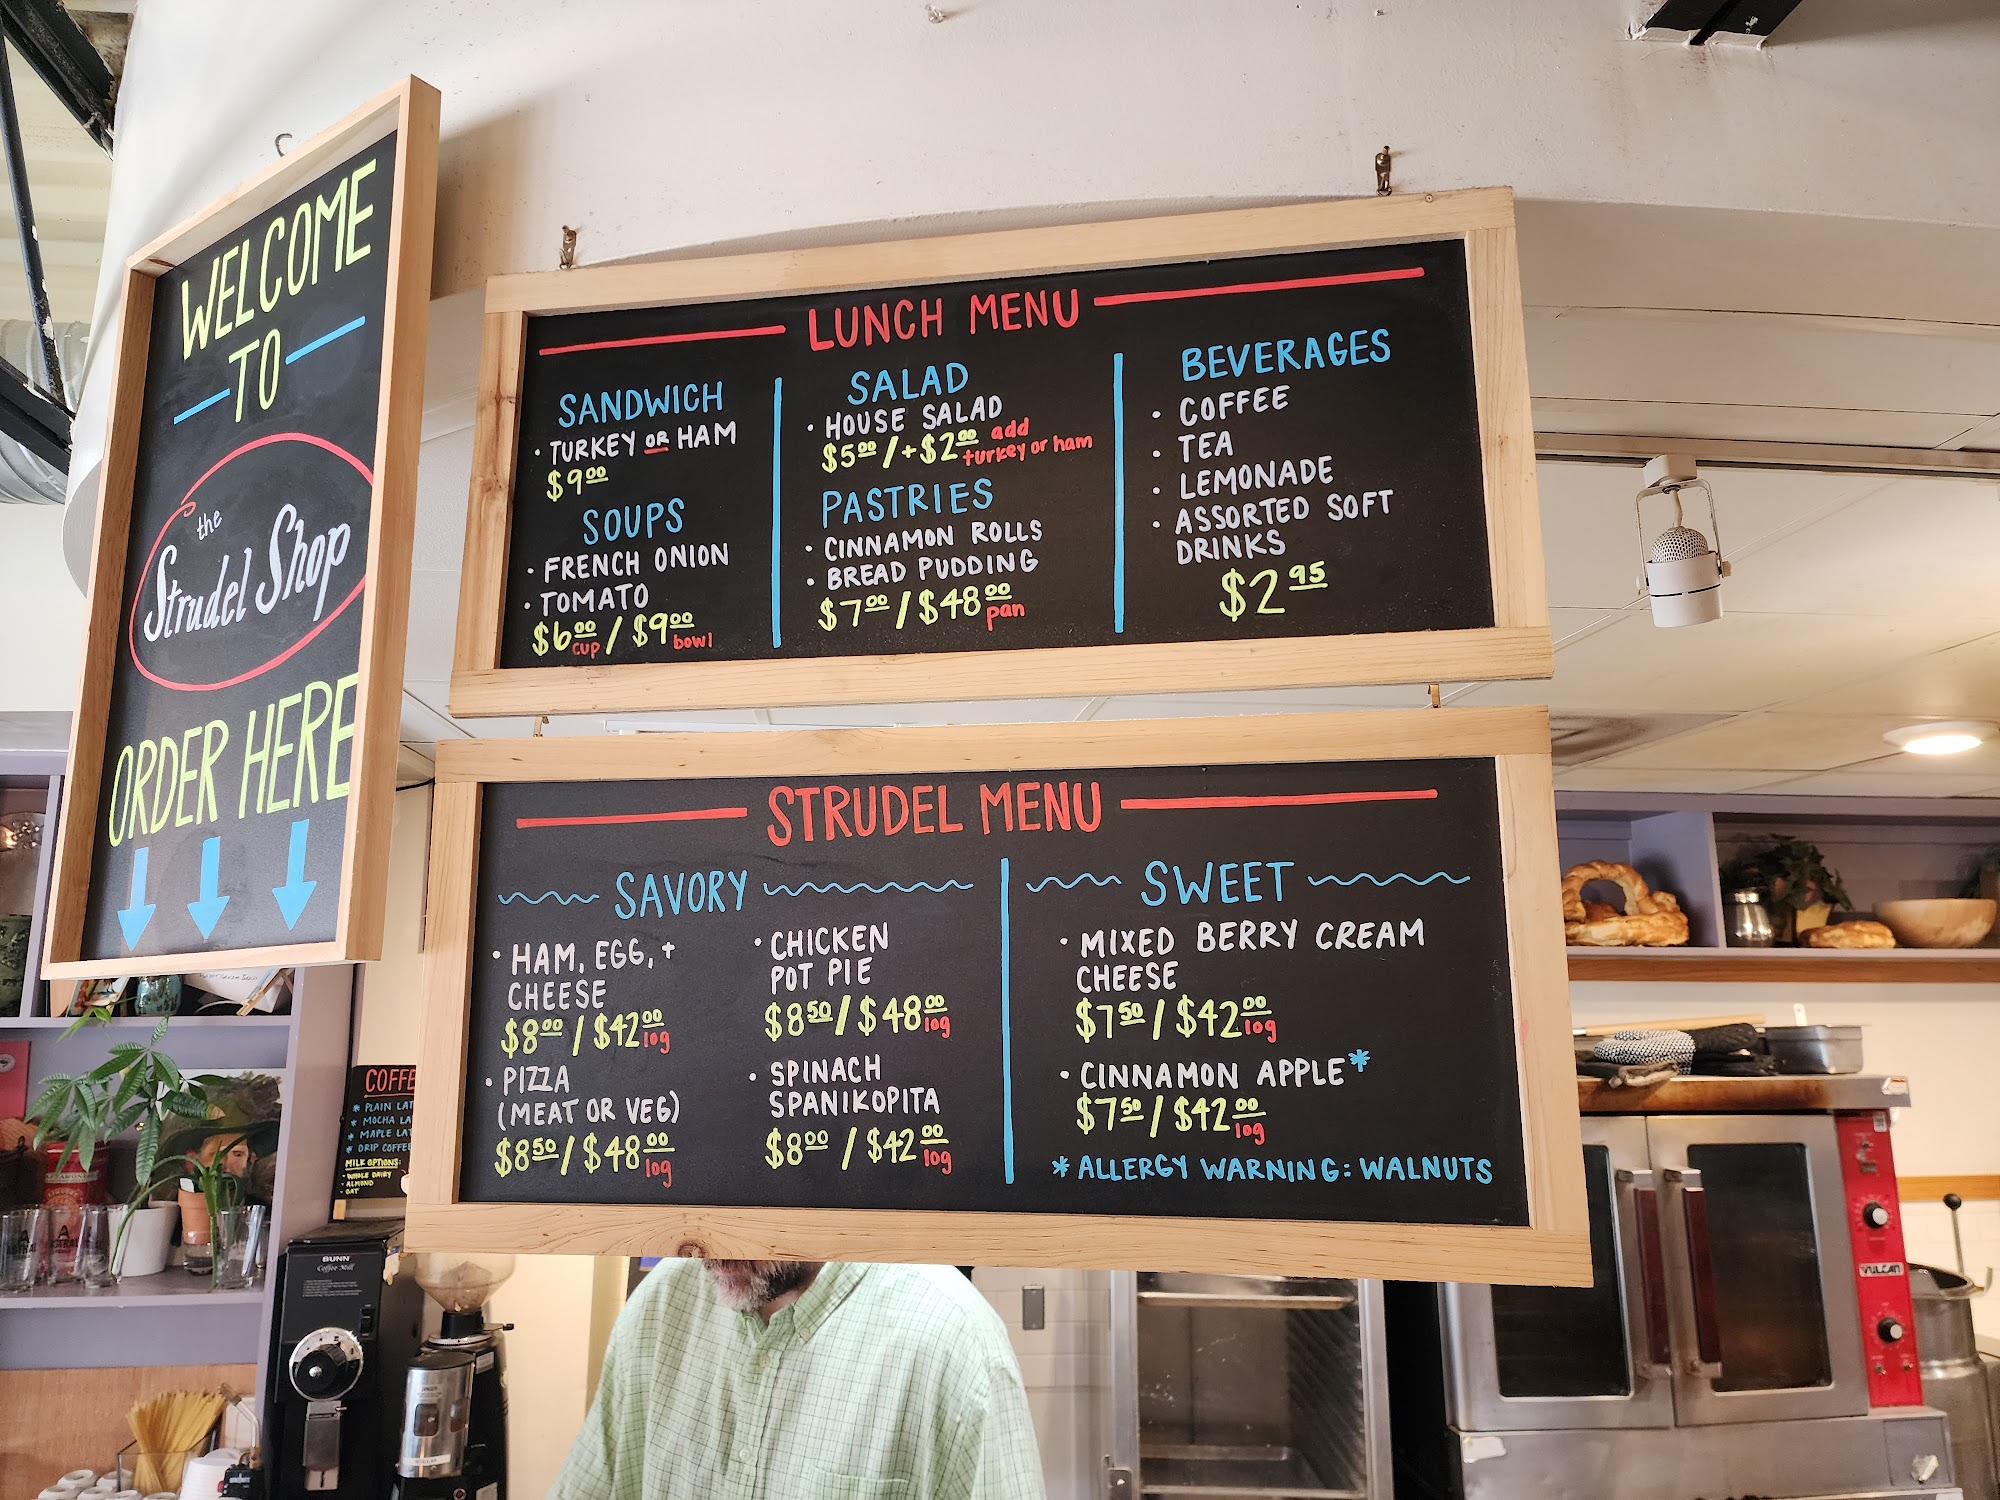 WELCOME
TO
the
Strudel Shop
ORDER HERE
LUNCH MENU
SANDWICH
• TURKEY OR HAM
$9.00
SOUPS
• FRENCH ONION
• TOMATO
$6.00 cup / $9.00 bowl
SALAD
• HOUSE SALAD
$5.00 / +$2.00 add
turkey or ham
PASTRIES
• CINNAMON ROLLS
• BREAD PUDDING
$7.00 / $48.00 pan
BEVERAGES
• COFFEE
• TEA
• LEMONADE
• ASSORTED SOFT
DRINKS
$2.95
STRUDEL MENU
SAVORY
• HAM, EGG, +
CHEESE
$8.00 / $42.00 log
• PIZZA
(MEAT OR VEG)
$8.50 / $48.00 log
• CHICKEN
POT PIE
$8.50 / $48.00 log
• SPINACH
SPANIKOPITA
$8.00 / $42.00 log
SWEET
• MIXED BERRY CREAM
CHEESE
$7.50 / $42.00 log
• CINNAMON APPLE*
$7.50 / $42.00 log
* ALLERGY WARNING: WALNUTS
COFFE
* PLAIN LAT
* MOCHA LA
* MAPLE LAT
* DRIP COFFE
MILK OPTIONS:
- WHOLE DAIRY
- ALMOND
- OAT
BUNN
Coffee Mill
VULCAN